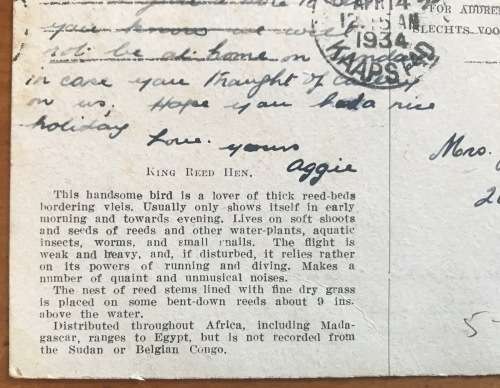 you know we will
not be at home on
in case you thought of
on us, Hope you had a nice
holiday
Love. yours
Aggie
APR 14
1934
KAAPSTAD
FOR ADDRE
SLECHTS VOO
Mrs.
KING REED HEN.
This handsome bird is a lover of thick reed-beds
bordering vleis. Usually only shows itself in early
morning and towards evening. Lives on soft shoots
and seeds of reeds and other water-plants, aquatic
insects, worms, and small snails. The flight is
weak and heavy, and, if disturbed, it relies rather
on its powers of running and diving. Makes a
number of quaint and unmusical noises.
The nest of reed stems lined with fine dry grass
is placed on some bent-down reeds about 9 ins.
above the water.
Distributed throughout Africa, including Mada-
gascar, ranges to Egypt, but is not recorded from
the Sudan or Belgian Congo.